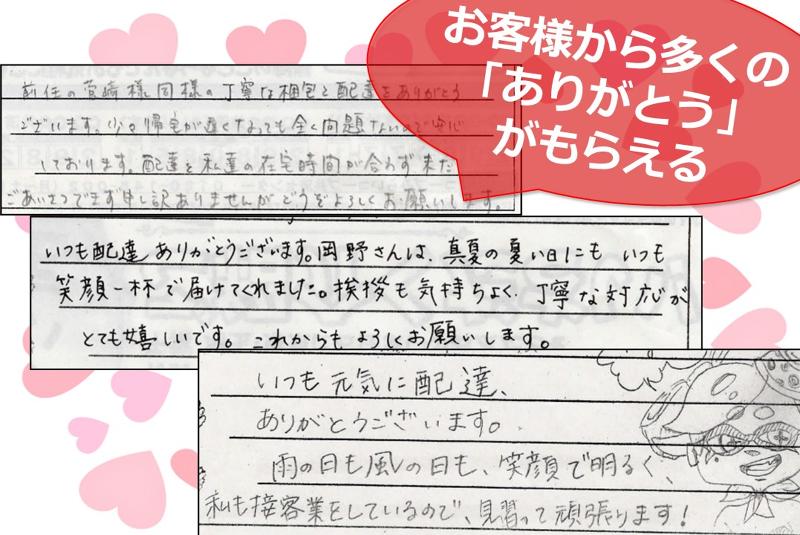 お客様から多くの
「ありがとう」
がもらえる
前任の宮崎様同様の丁寧な梱包と配達をありがとう
ございます。少々帰宅が遅くなっても全く問題ないので安心
しております。配達と私達の在宅時間が合わず未だ
ごあいさつできず申し訳ありませんがどうぞよろしくお願いします。
いつも配達ありがとうございます。岡野さんは、真夏の暑い日にも いつも
笑顔一杯で届けてくれました。挨拶も気持ちよく、丁寧な対応が
とても嬉しいです。これからもよろしくお願いします。
いつも元気に配達、
ありがとうございます。
雨の日も風の日も、笑顔で明るく、
私も接客業をしているので、見習って頑張ります!